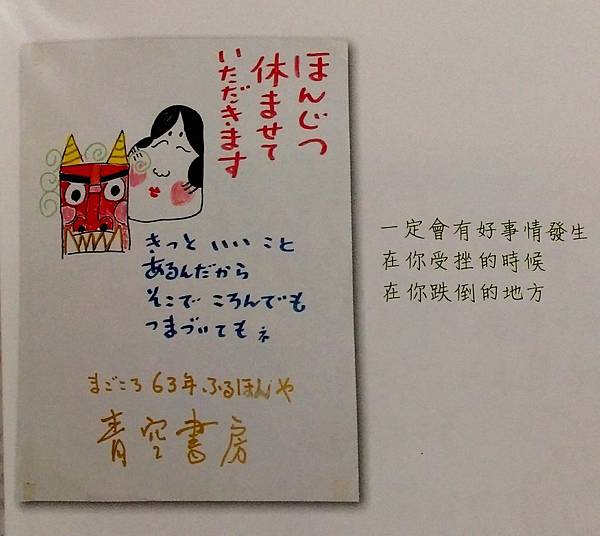 ほんじつ
休ませて
いただきます
きっと いい こと
あるんだから
そこで ころんでも
つまづいても ネ
まごころ 63年 ふるほんや
青空書房
一定會有好事情發生
在你受挫的時候
在你跌倒的地方